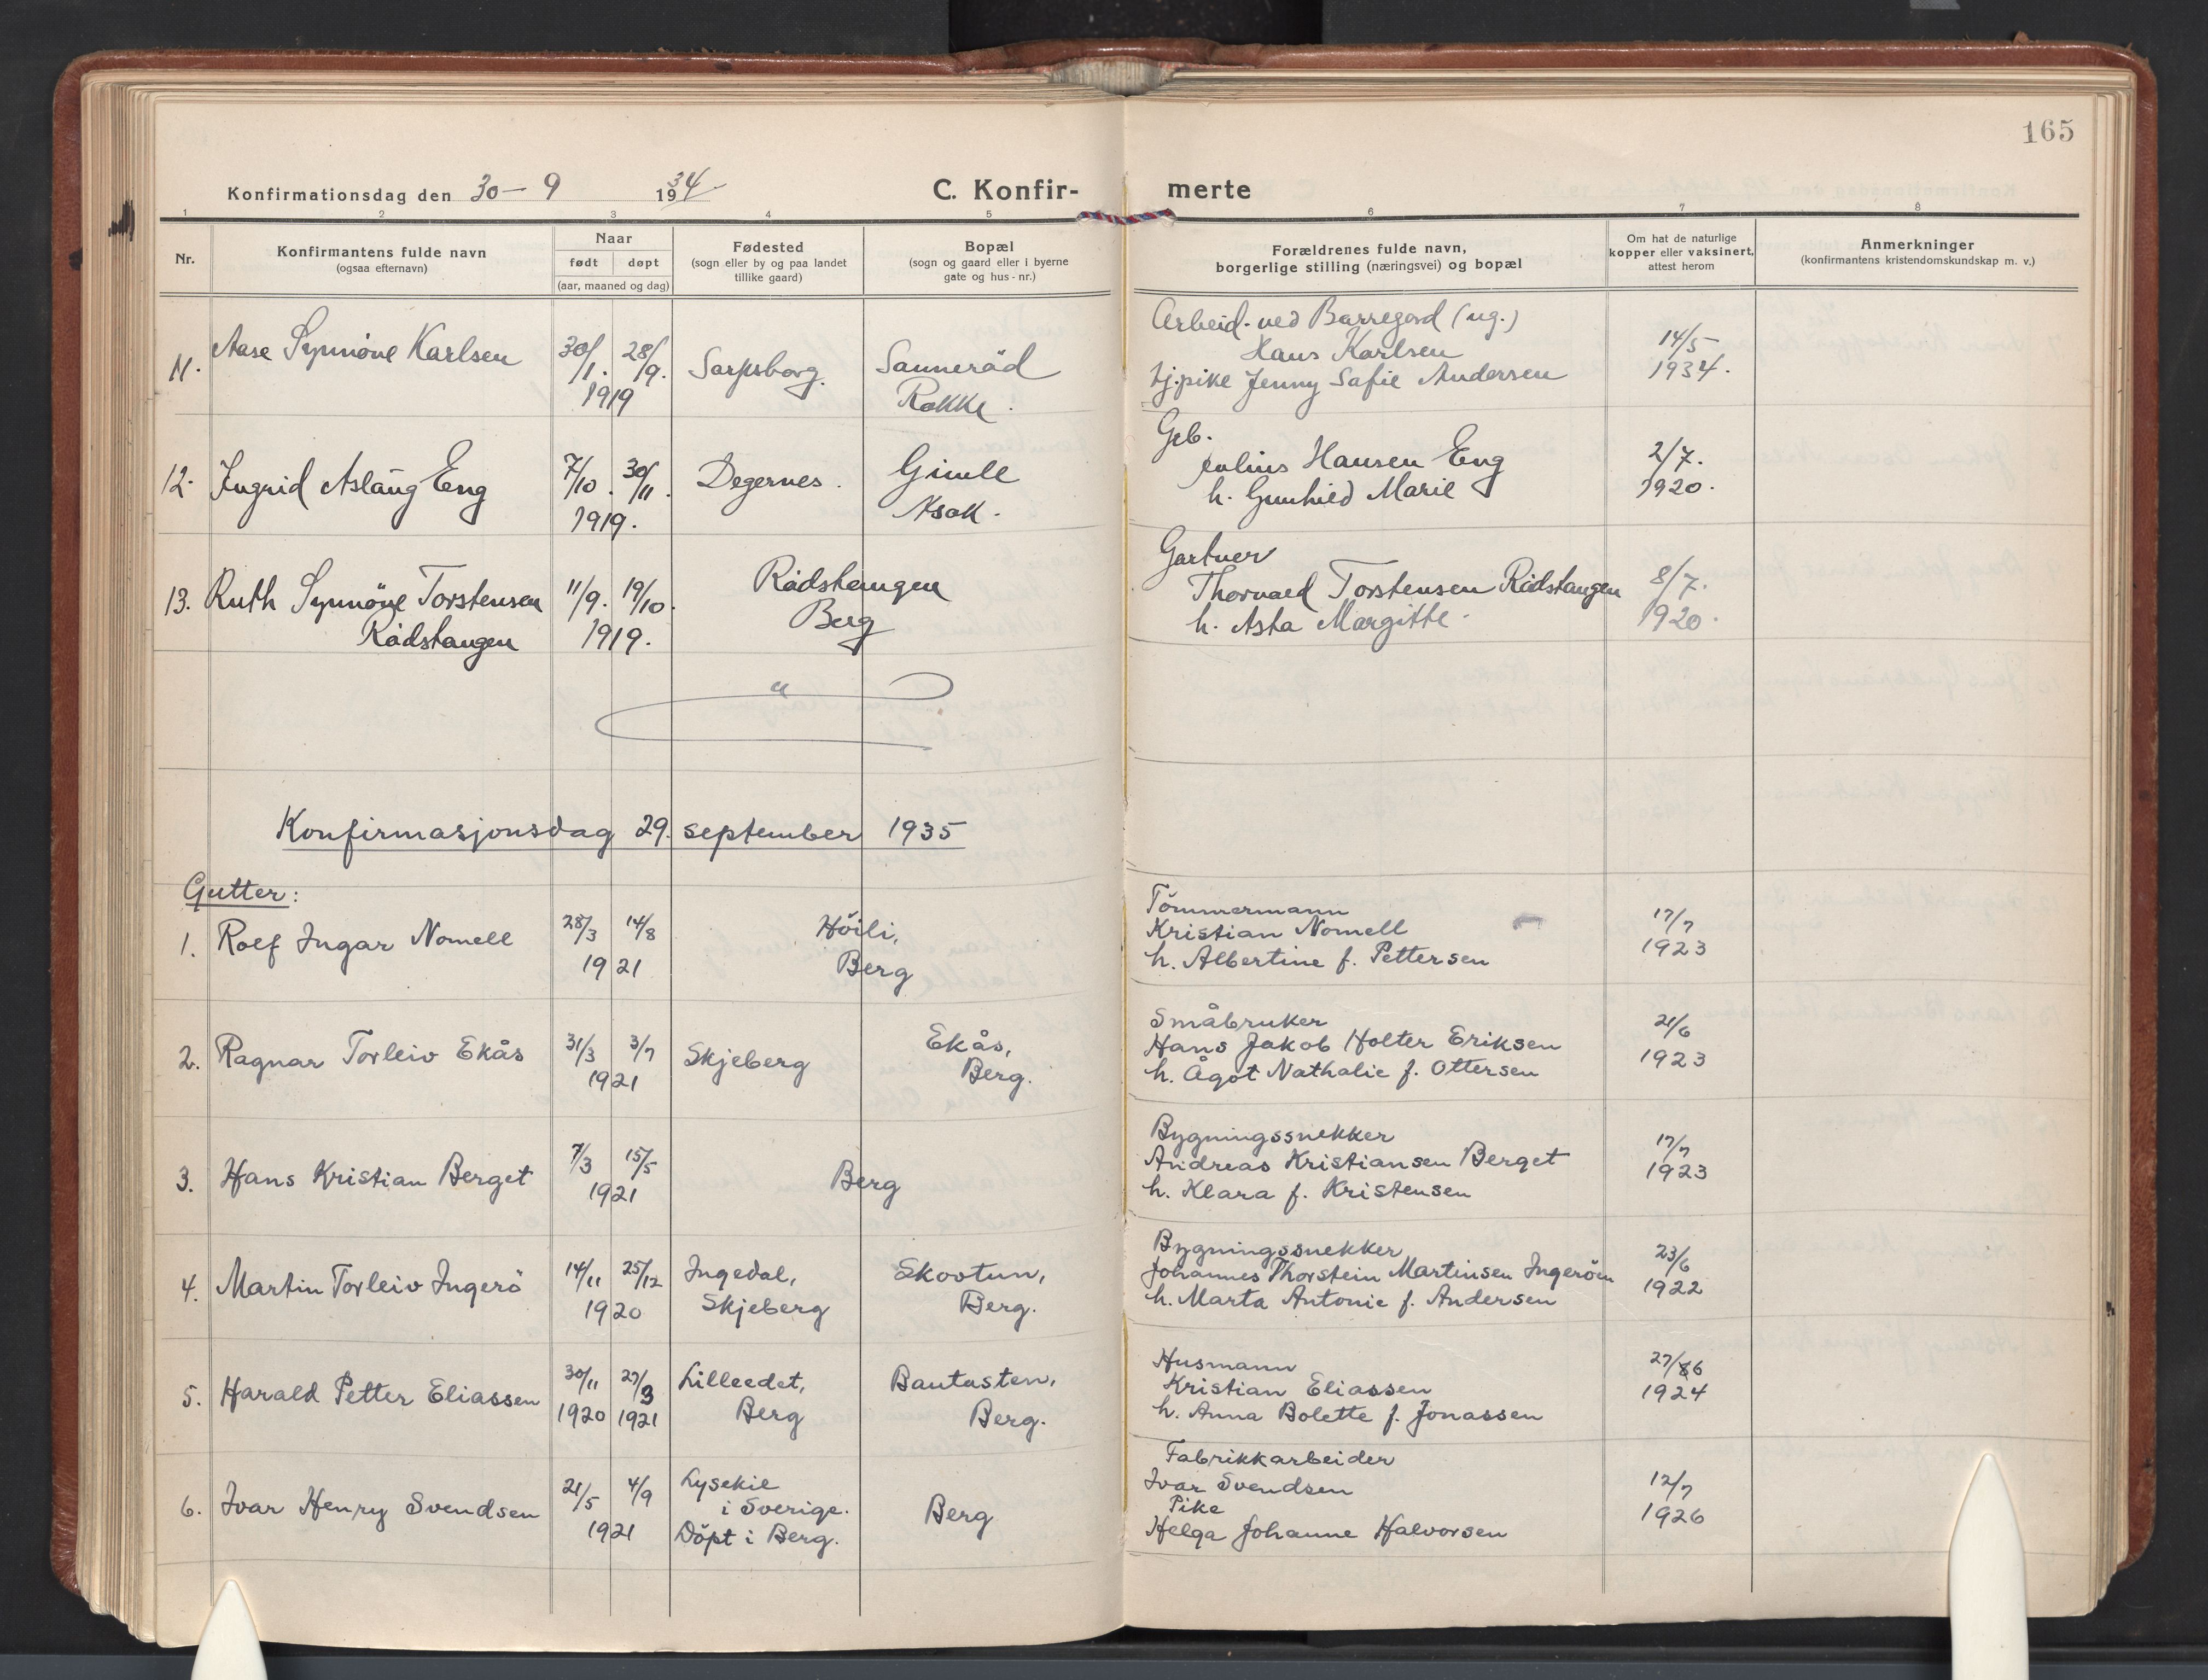 165
Konfirmationsdag den 30 - 9 1934
C. Konfir- merte
1 2 3 4 5 6 7 8
Nr.
Konfirmantens fulde navn
(ogsaa efternavn)
Naar
født døpt
(aar, maaned og dag)
Fødested
(sogn eller by og paa landet
tillike gaard)
Bopæl
(sogn og gaard eller i byerne
gate og hus - nr.)
Forældrenes fulde navn,
borgerlige stilling (næringsvei) og bopæl
Om hat de naturlige
kopper eller vaksinert,
attest herom
Anmerkninger
(konfirmantens kristendomskundskap m. v.)
11. Aase Synnöve Karlsen
30/1. 28/9.
1919
Sarpsborg.
Sanneråd
Rokke.
Arbeid. ved Borregård (ug.)
Hans Karlsen
tj.pike Jenny Safie Andersen
14/5
1934.
12. Ingrid Aslaug Eng
7/10. 30/11.
1919.
Degernes.
Gimle
Asak.
Grb.
Julius Hansen Eng
h. Gunhild Marie
2/7.
1920.
13. Ruth Synnöve Torstensen
Rådstangen
11/9. 19/10.
1919.
Rådstangen
Berg
Gartner
Thorvald Torstensen Rådstangen
h. Asta Margitte.
8/7.
1920.
"
Konfirmasjonsdag 29. september 1935
Gutter:
1. Rolf Ingar Nomell
28/3 14/8
1921
Höili,
Berg
Tömmermann
Kristian Nomell
h. Albertine f. Pettersen
17/7
1923
2. Ragnar Torleiv Ekås
31/3 3/7
1921
Skjeberg
Ekås,
Berg.
Småbruker
Hans Jakob Holter Eriksen
h. Ågot Nathalie f. Ottersen
21/6
1923
3. Hans Kristian Berget
7/3 15/5
1921
Berg
Bygningssnekker
Andreas Kristiansen Berget
h. Klara f. Kristensen
17/7
1923
4. Martin Torleiv Ingerö
14/11 25/12
1920
Ingedal,
Skjeberg
Skovtun,
Berg.
Bygningssnekker
Johannes Thorstein Martinsen Ingeröen
h. Marta Antonie f. Andersen
23/6
1922
5. Harald Petter Eliassen
30/11 27/3
1920 1921
Lilleedet,
Berg
Bautasten,
Berg.
Husmann
Kristian Eliassen
h. Anna Bolette f. Jonassen
27/6
1924
6. Ivar Henry Svendsen
21/5 4/9
1921
Lysekil
i Sverige.
Döpt i Berg.
Berg
Fabrikkarbeider
Ivar Svendsen
Pike
Helga Johanne Halvorsen
12/7
1926